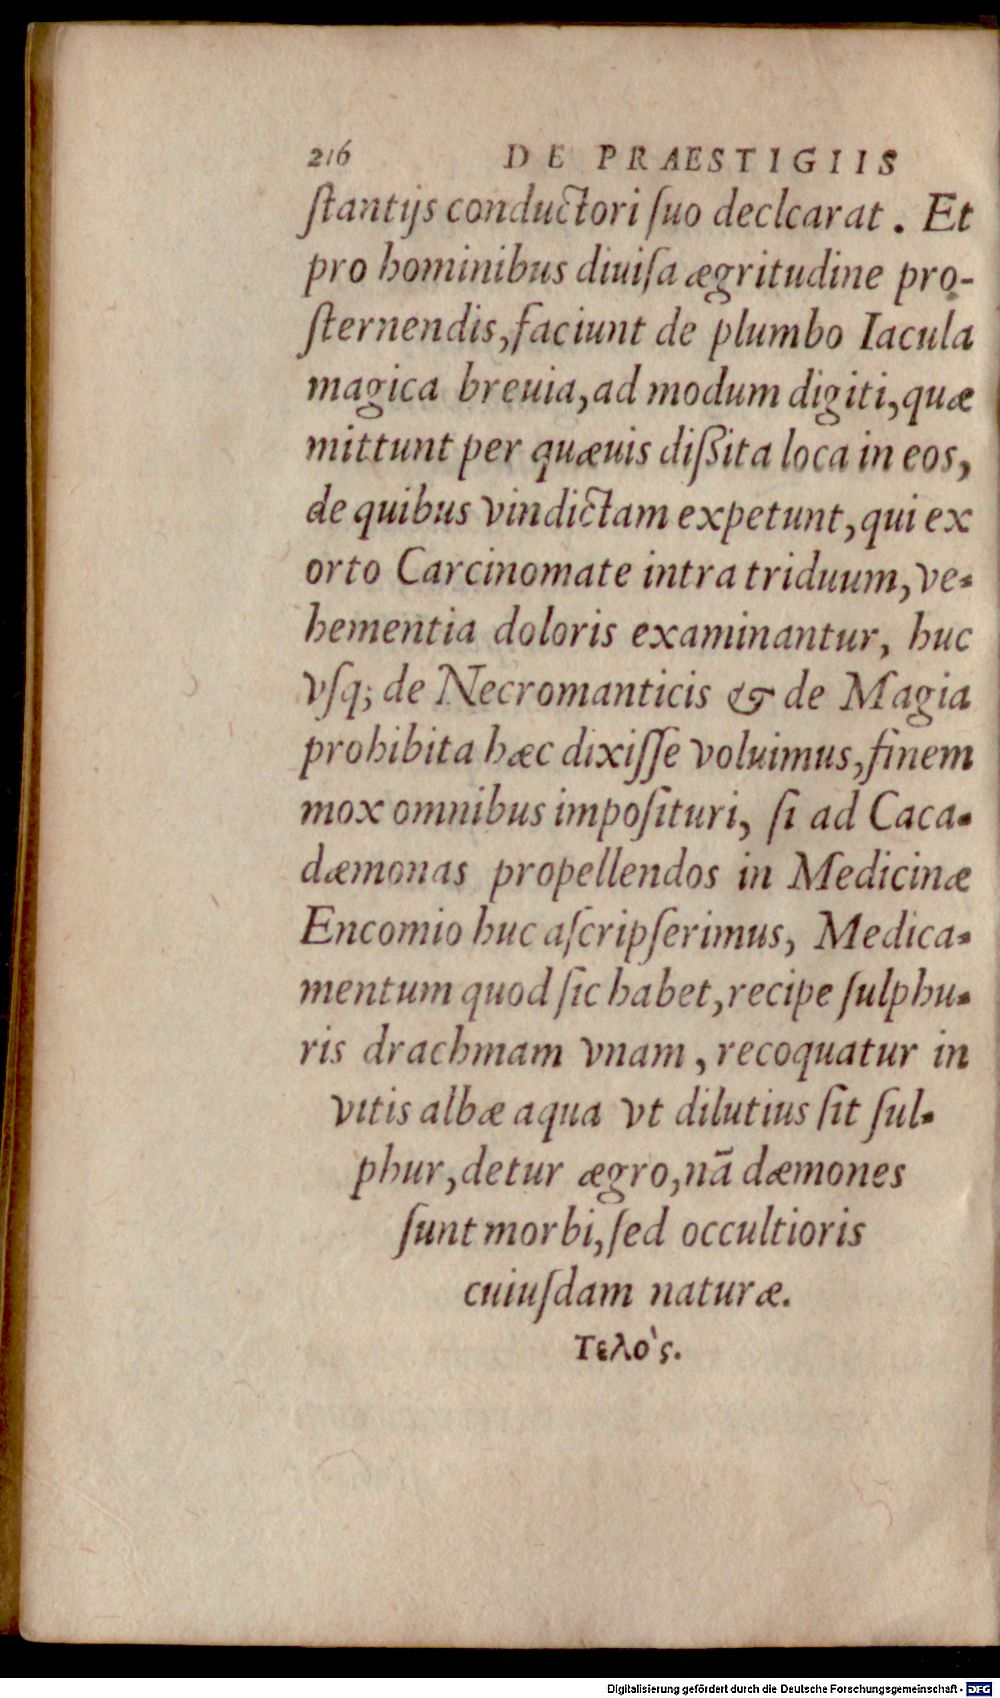 216 DE PRAESTIGIIS
ſtantijs conductori ſuo declcarat. Et
pro hominibus diuiſa ægritudine pro-
ſternendis, faciunt de plumbo Iacula
magica breuia, ad modum digiti, quæ
mittunt per quæuis diſſita loca in eos,
de quibus vindictam expetunt, qui ex
orto Carcinomate intra triduum, ve-
hementia doloris examinantur, huc
vſq; de Necromanticis & de Magia
prohibita hæc dixiſſe voluimus, finem
mox omnibus impoſituri, ſi ad Caca-
dæmonas propellendos in Medicinæ
Encomio huc aſcripſerimus, Medica-
mentum quod ſic habet, recipe ſulphu-
ris drachmam vnam, recoquatur in
vitis albæ aqua vt dilutius ſit ſul-
phur, detur ægro, nā dæmones
ſunt morbi, ſed occultioris
cuiuſdam naturæ.
Τελὸς.
Digitalisierung gefördert durch die Deutsche Forschungsgemeinschaft - DFG